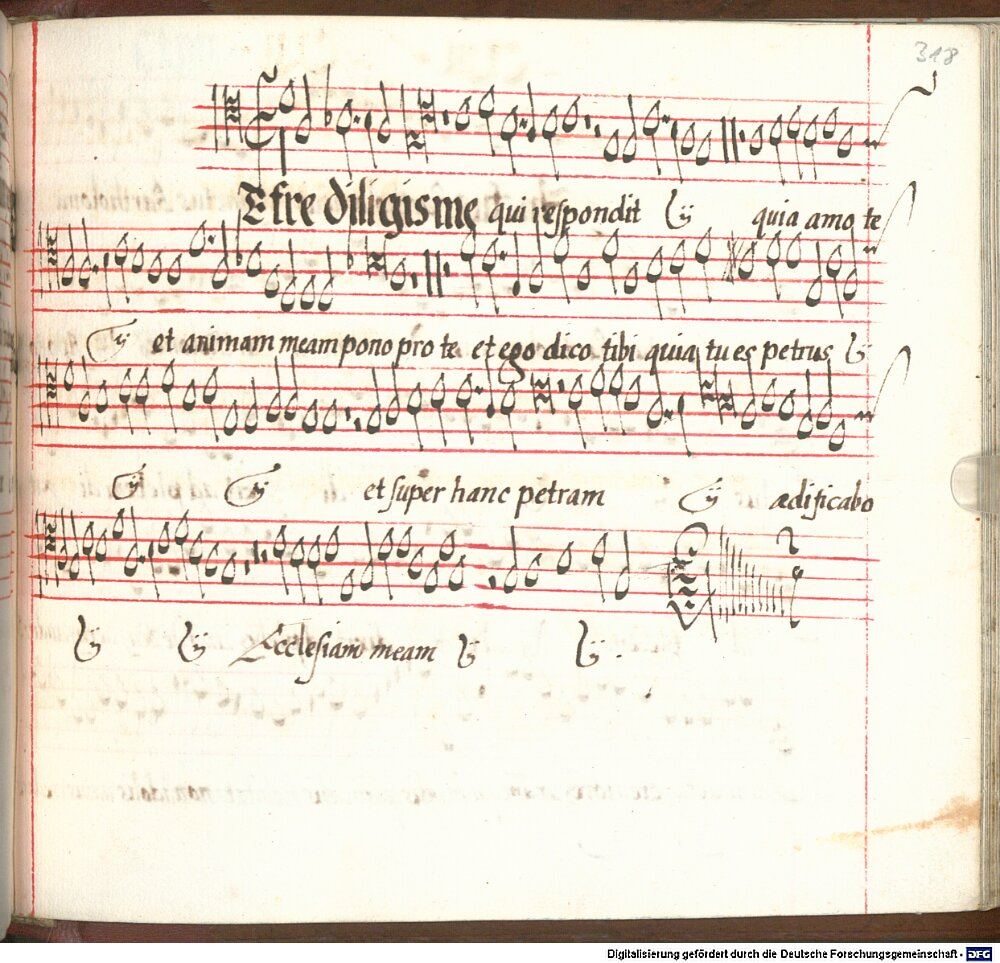 318
Etre diligis me qui respondit ij quia amo te
ij et animam meam pono pro te et ego dico tibi quia tu es petrus ij
ij ij et super hanc petram ij ædificabo
ij ij Ecclesiam meam ij ij .
Digitalisierung gefördert durch die Deutsche Forschungsgemeinschaft - DFG